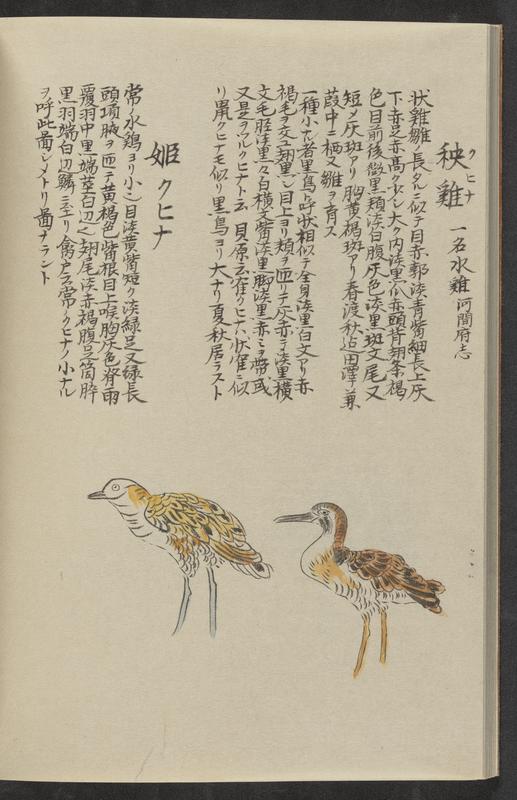 秧雞 クヒナ 一名水雞 河間府志
状雞雛ノ長タルニ似テ目赤郭淡青觜細長上灰
下赤足赤高ク少シ大ク内淡黒爪赤頭背翅条褐
色目前後微黒頬淡白腹灰色淡黒斑文尾又
短メ灰斑アリ胸黄褐斑アリ春渡秋迄田澤兼
葭中ニ栖又雛ヲ育ス
一種小ナル者里鳥ト呼状相似テ全身淡黒白文アリ赤
褐毛ヲ交ユ翅黒シ目上ヨリ頬ヲ匝リテ灰赤ヲ淡黒横
文毛脛淡黒々白横文觜淡黒脚淡黒赤ミヲ帯或
又是ヲツルクヒナト云貝原云雀クヒナハ状雀ニ似
リ鼠クヒナモ似リ里鳥ヨリ大ナリ夏秋居ラスト
姫クヒナ
常ノ水鶏ヨリ小シ目淡黄觜短ク淡緑足又緑長
頭項腋ヲ匝テ黄褐色觜根目上喉胸灰色脊両
覆羽中里端茎白辺ヘ翅尾淡赤褐腹足茵脺
黒羽端白辺鱗ニ至リ禽戸ス常ノクヒナノ小ナル
ヲ呼此啚シメトリ啚ナラント